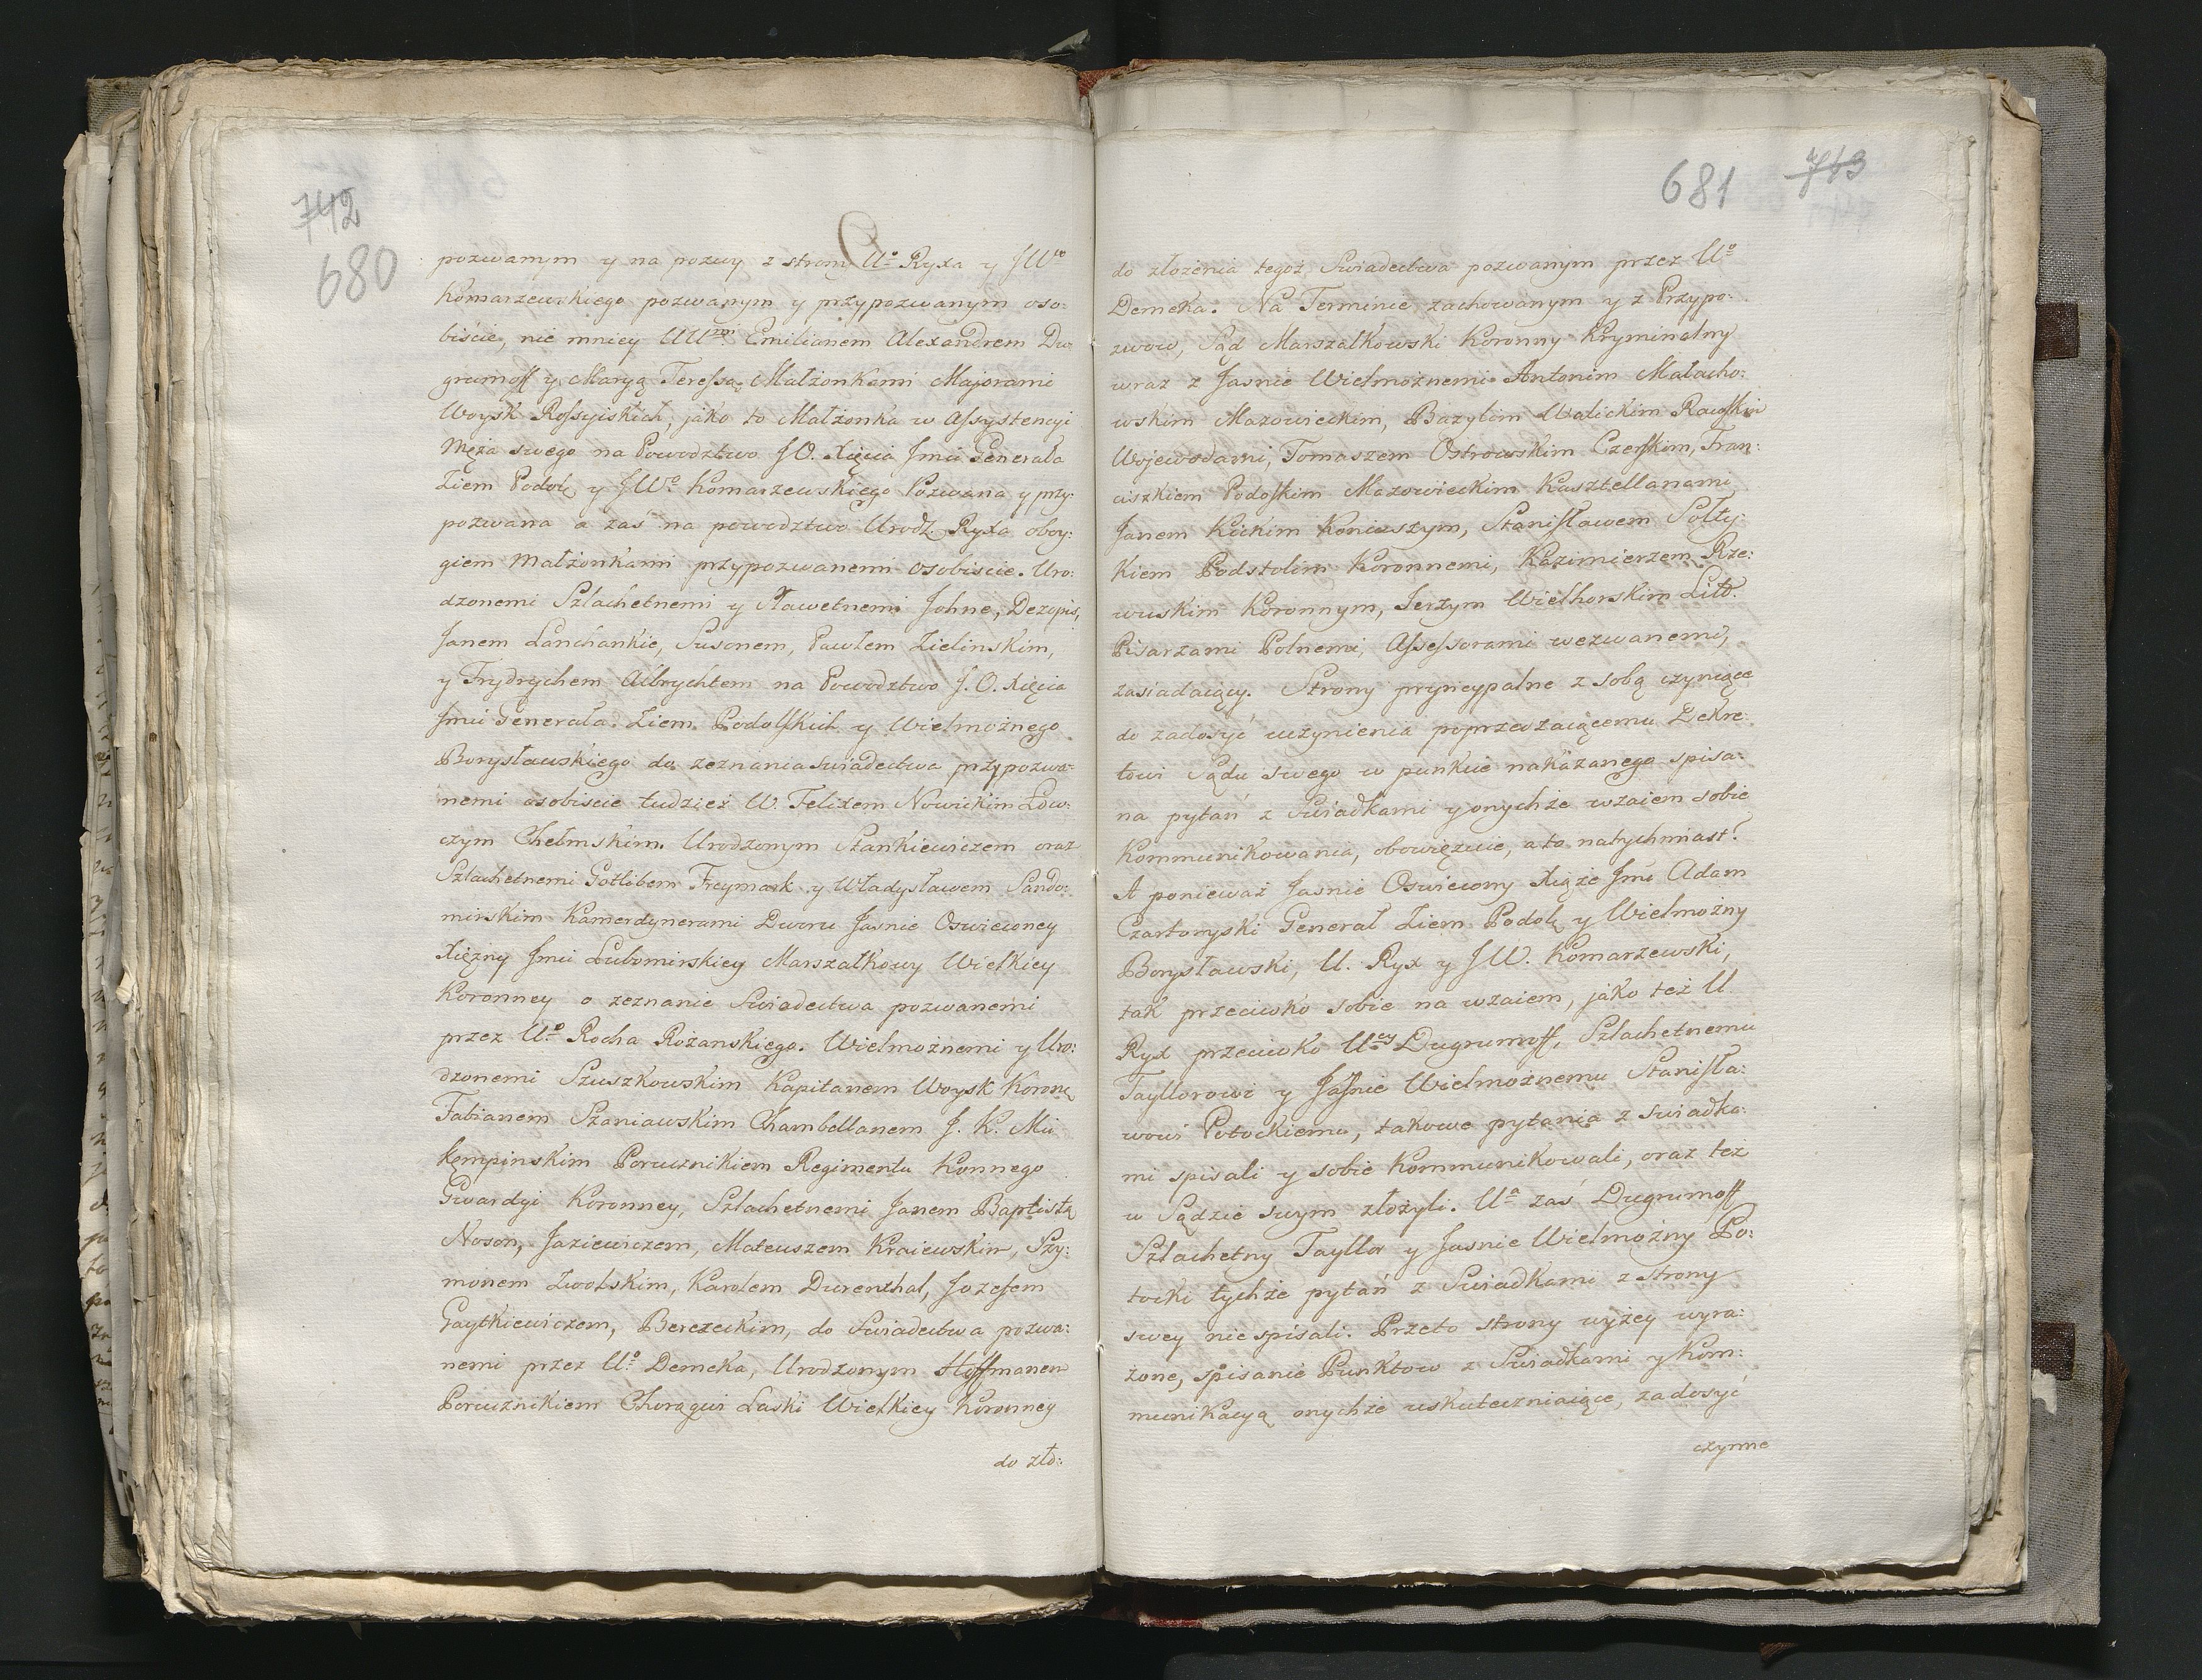 742
680
pozwanym y na pozwy z strony U° Ryxa y JW°
Komarzewskiego pozwanym y przypozwanym oso:
biście, nie mniey UU Emilianem Alexandrem Du:
grumoff y Maryą Teressą Małżonkami Majorami
Woysk Rossyiskich, jako to Małżonka w Assystencyi
Męża swego na Powodztwo J.O. Xięcia Jmci Generała
Ziem Podolę y JW° Komarzewskiego Pozwana y przy:
pozwana a zaś na powodztwo Urodz. Ryxa oboy:
giem Małżonkami przypozwanemi osobiscie. Uro:
dzonemi Szlachetnemi y Sławetnemi Johne, Dezopis,
Janem Lanchankie, Susonem, Pawłem Zielinskim,
y Frydrychem Albrychtem na Powodztwo J.O. Xięcia
Jmci Generała Ziem Podolskich y Wielmożnego
Borysławskiego do zeznania swiadectwa przypozwa:
nemi osobiscie tudzież W. Felixem Nowickim Łow:
czym Chełmskim. Urodzonym Stankiewiczem oraz
Szlachetnemi Gotlibem Freymark y Władysławem Sando:
mirskim Kamerdynerami Dworu Jasnie Oswieconey
Xiężny Jmci Lubomirskiey Marszałkowy Wielkiey
Koronney o zeznanie Swiadectwa pozwanemi
przez U° Rocha Rożanskiego. Wielmożnemi y Uro:
dzonemi Szuszkowskim Kapitanem Woysk Koronę
Fabianem Szaniawskim Chambellanem J. K. Mci
Kempinskim Porucznikiem Regimentu Konnego
Gwardyi Koronney, Szlachetnemi Janem Baptistą
Noson, Jaziewiczem, Mateuszem Kraiewskim, Szy:
monem Zwolskim, Karolem Durenthal, Jozefem
Gaytkiewiczem, Berezeckim, do Swiadectwa pozwa:
nemi przez U° Demeka, Urodzonym Hoffmanem
Porucznikiem Chorągwi Laski Wielkiey Koronney
do zło:
681 743
do złożenia tegoż Swiadectwa pozwanym przez U°
Demeka. Na Terminie zachowanym y z Przypo:
zwow, Sąd Marszałkowski Koronny Kryminalny
wraz z Jasnie Wielmożnemi Antonim Małacho:
wskim Mazowieckim, Bazylim Walickim Rawskim
Wojewodami, Tomaszem Ostrowskim Czerskim, Fran:
ciszkiem Podoskim Mazowieckim Kasztellanami
Janem Kickim Koniuszym, Stanisławem Sołty:
kiem Podstolim Koronnemi, Kazimierzem Rze:
wuskim Koronnym, Jerzym Wielhorskim Litt.
Pisarzami Polnemi, Assessorami wezwanemi,
zasiadaiący. Strony pryncypalne z sobą czyniące
do zadosyć uczynienia poprzedzaiącemu Dekre:
towi Sądu swego w punkcie nakazanego spisa:
na pytań z Swiadkami y onychże wzaiem sobie
Kommunikowania, obowięzuie, a to natychmiast.
A ponieważ Jasnie Oswiecony Xiąże Jmć Adam
Czartoryski Generał Ziem Podolę y Wielmożny
Borysławski, U. Ryx y JW. Komarzewski,
tak przeciwko sobie na wzaiem, jako też U.
Ryx przeciwko U Dugrumoff, Szlachetnemu
Tayllorowi y Jasnie Wielmożnemu Stanisła:
wowi Potockiemu, takowe pytania z swiadka:
mi spisali y sobie Kommunikowali, oraz też
w Sądzie swym złożyli. Ua zaś Dugrumoff
Szlachetny Tayllor y Jasnie Wielmożny Po:
tocki tychże pytań z Swiadkami z strony
swey nie spisali. Przeto strony wyżey wyra:
żone, spisanie Punktow z Swiadkami y Kom:
munikacyą onychże uskuteczniaiące, zadosyć
czynne